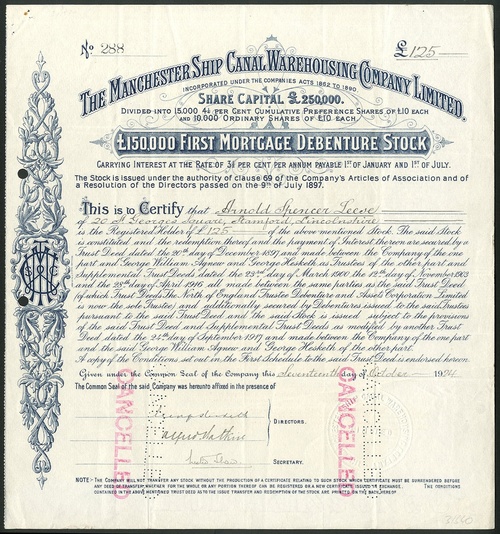 No 288
£125
THE MANCHESTER SHIP CANAL WAREHOUSING COMPANY LIMITED.
INCORPORATED UNDER THE COMPANIES ACTS 1862 TO 1890
SHARE CAPITAL £250,000.
DIVIDED INTO 15,000 4½ PER CENT CUMULATIVE PREFERENCE SHARES OF £10 EACH
AND 10,000 ORDINARY SHARES OF £10 EACH.
£150,000 FIRST MORTGAGE DEBENTURE STOCK
CARRYING INTEREST AT THE RATE OF 3½ PER CENT PER ANNUM PAYABLE 1ST OF JANUARY AND 1ST OF JULY.
The Stock is issued under the authority of clause 69 of the Company's Articles of Association and of
a Resolution of the Directors passed on the 9th of July 1897.
This is to Certify that Arnold Spencer Leese
of St. Georges Square, Stamford, Lincolnshire
is the Registered Holder of £125 of the above mentioned Stock. The said Stock
is constituted and the redemption thereof and the payment of Interest thereon are secured by a
Trust Deed dated the 20th day of December 1897 and made between the Company of the one
part and George William Agnew and George Hesketh as Trustees of the other part and
Supplemental Trust Deeds dated the 23rd day of March 1900 the 12th day of November 1903
and the 28th day of April 1916 all made between the same parties as the said Trust Deed
of which Trust Deeds The North of England Trustee Debenture and Asset Corporation Limited
is now the sole Trustee and additionally secured by Debentures issued to the said Trustee
pursuant to the said Trust Deed and the said Stock is issued subject to the provisions
of the said Trust Deed and Supplemental Trust Deeds as modified by another Trust
Deed dated the 24th day of September 1917 and made between the Company of the one part
and the said George William Agnew and George Hesketh of the other part.
A copy of the Conditions set out in the First Schedule to the said Trust Deed is endorsed hereon.
Given under the Common Seal of the Company this Seventeenth day of October 1924
The Common Seal of the said Company was hereunto affixed in the presence of
DIRECTORS.
SECRETARY.
CANCELLED
CANCELLED
NOTE:- THE COMPANY WILL NOT TRANSFER ANY STOCK WITHOUT THE PRODUCTION OF A CERTIFICATE RELATING TO SUCH STOCK WHICH CERTIFICATE MUST BE SURRENDERED BEFORE
ANY DEED OF TRANSFER WHETHER FOR THE WHOLE OR ANY PORTION THEREOF CAN BE REGISTERED OR A NEW CERTIFICATE ISSUED IN EXCHANGE. THE CONDITIONS
CONTAINED IN THE ABOVE MENTIONED TRUST DEED AS TO THE ISSUE TRANSFER AND REDEMPTION OF THE STOCK ARE PRINTED ON THE BACK HEREOF